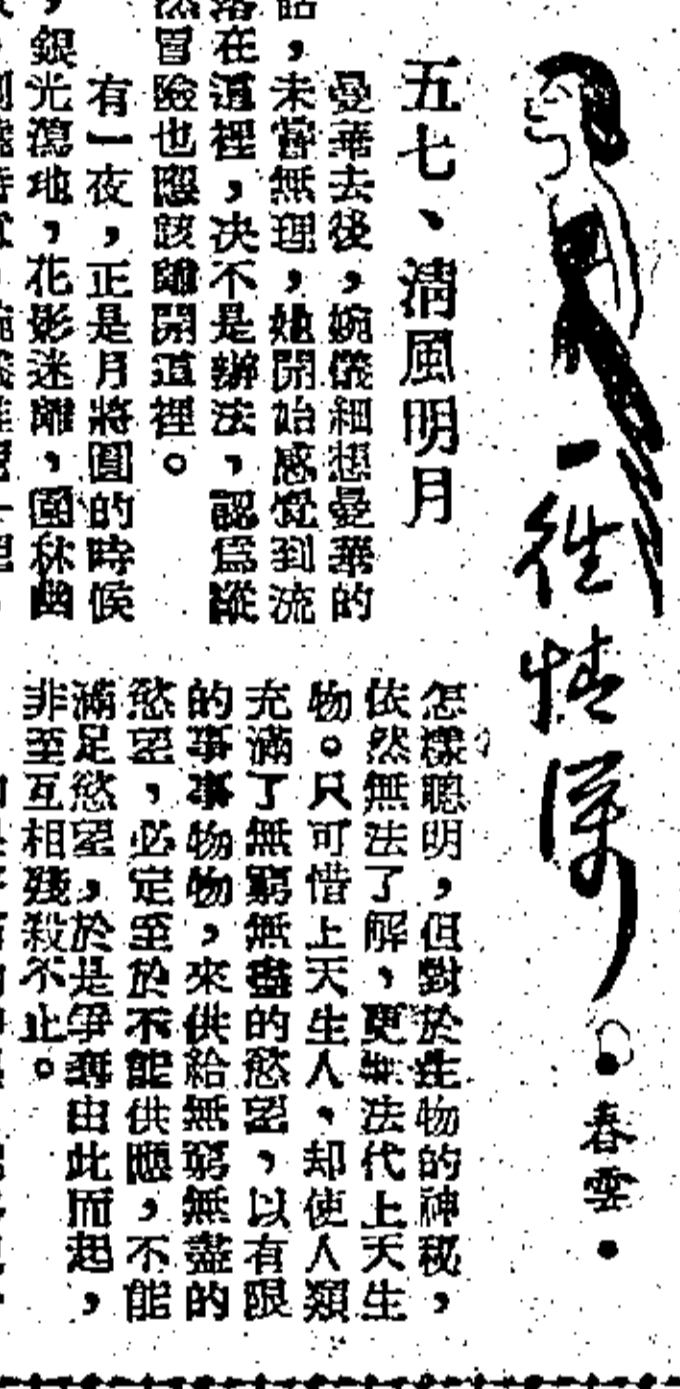 一往情深
•春雲•
五七、清風明月
曼華去後，婉儀細想曼華的
話，未嘗無理，她開始感覺到流
落在這裡，決不是辦法，認爲縱
然冒險也應該離開這裡。
有一夜，正是月將圓的時候
，銀光瀉地，花影迷離，園林幽
怎樣聰明，但對於生物的神秘，
依然無法了解，更無法代上天生
物。只可惜上天生人，却使人類
充滿了無窮無盡的慾望，以有限
的事事物物，來供給無窮無盡的
慾望，必定至於不能供應，不能
滿足慾望，於是爭奪由此而起，
非至互相殘殺不止。